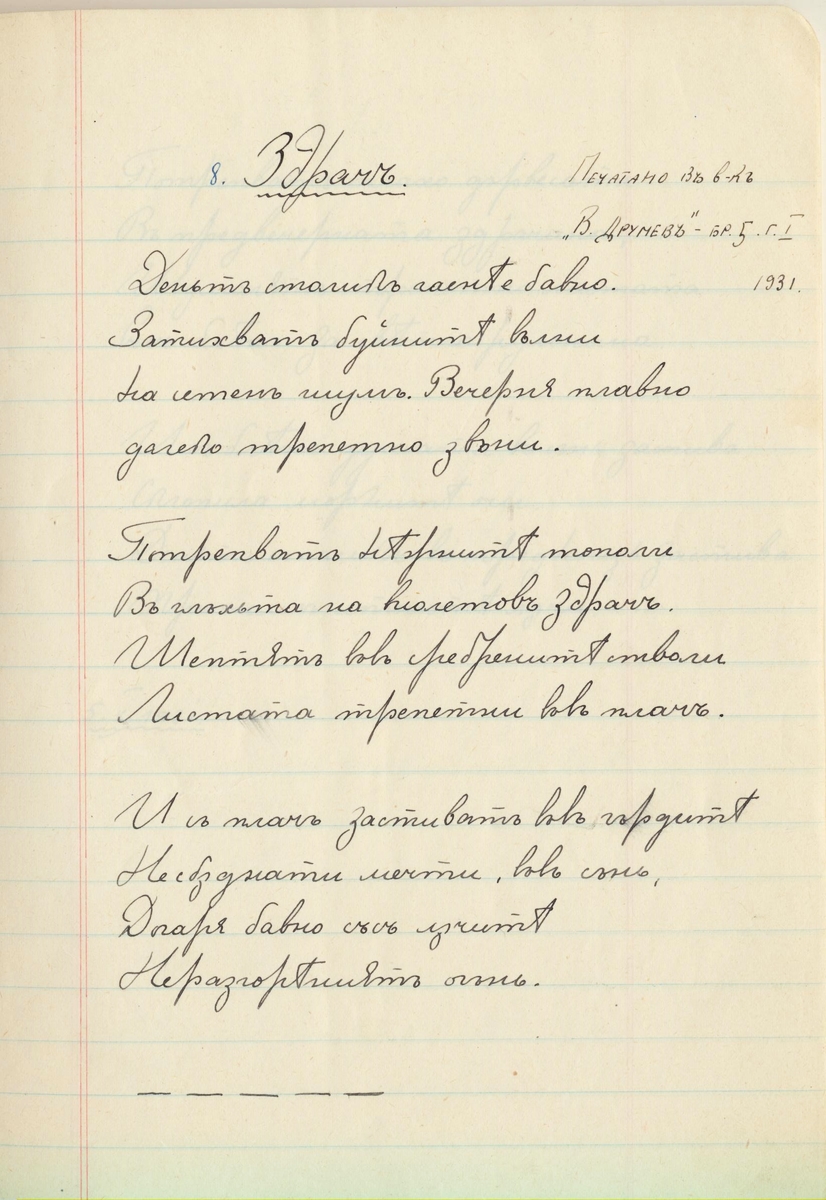 8. Здрачъ.
Печатано въ в-къ
„В. Друмевъ" - бр. 5. г. I
1931.
Деньтъ сталилъ гасне бавно.
Затихватъ буйнитѣ вълни
На сетенъ шумъ. Вечерня плавно
далеко трепетно звъни.
Потрепватъ нѣрнитѣ тополи
Въ глъхъта на виолетовъ здрачъ.
Шептятъ въвъ сребърнитѣ стволи
Листата трепетни въвъ плачъ.
И съ плачъ застиватъ въвъ гърдитѣ
Несбѫднати мечти, въвъ сънь,
Догаря бавно съсъ лѫчитѣ
Неразгорѣлиятъ огънь.